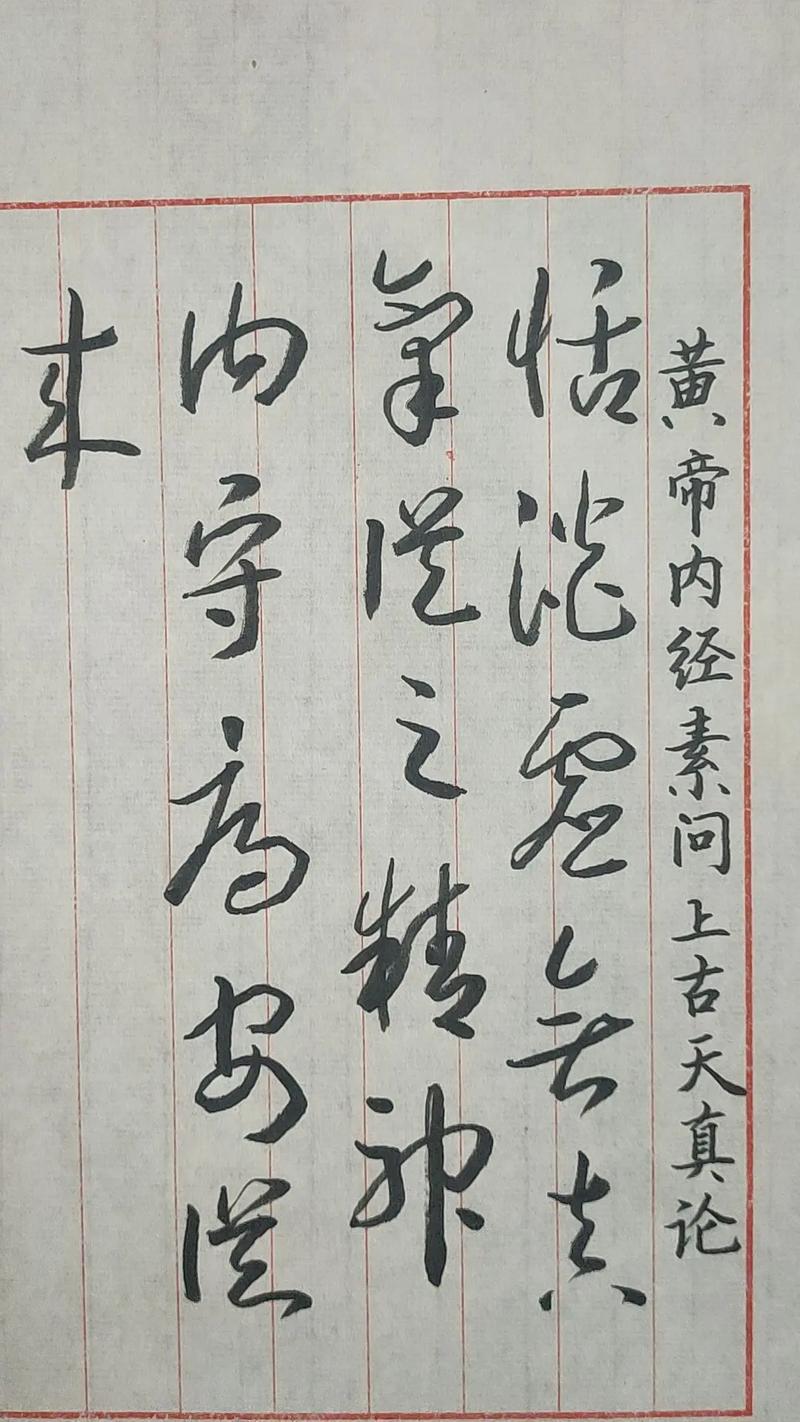 黄帝内经素问上古天真论
恬淡虚無真
氣從之精神
内守病安從
来